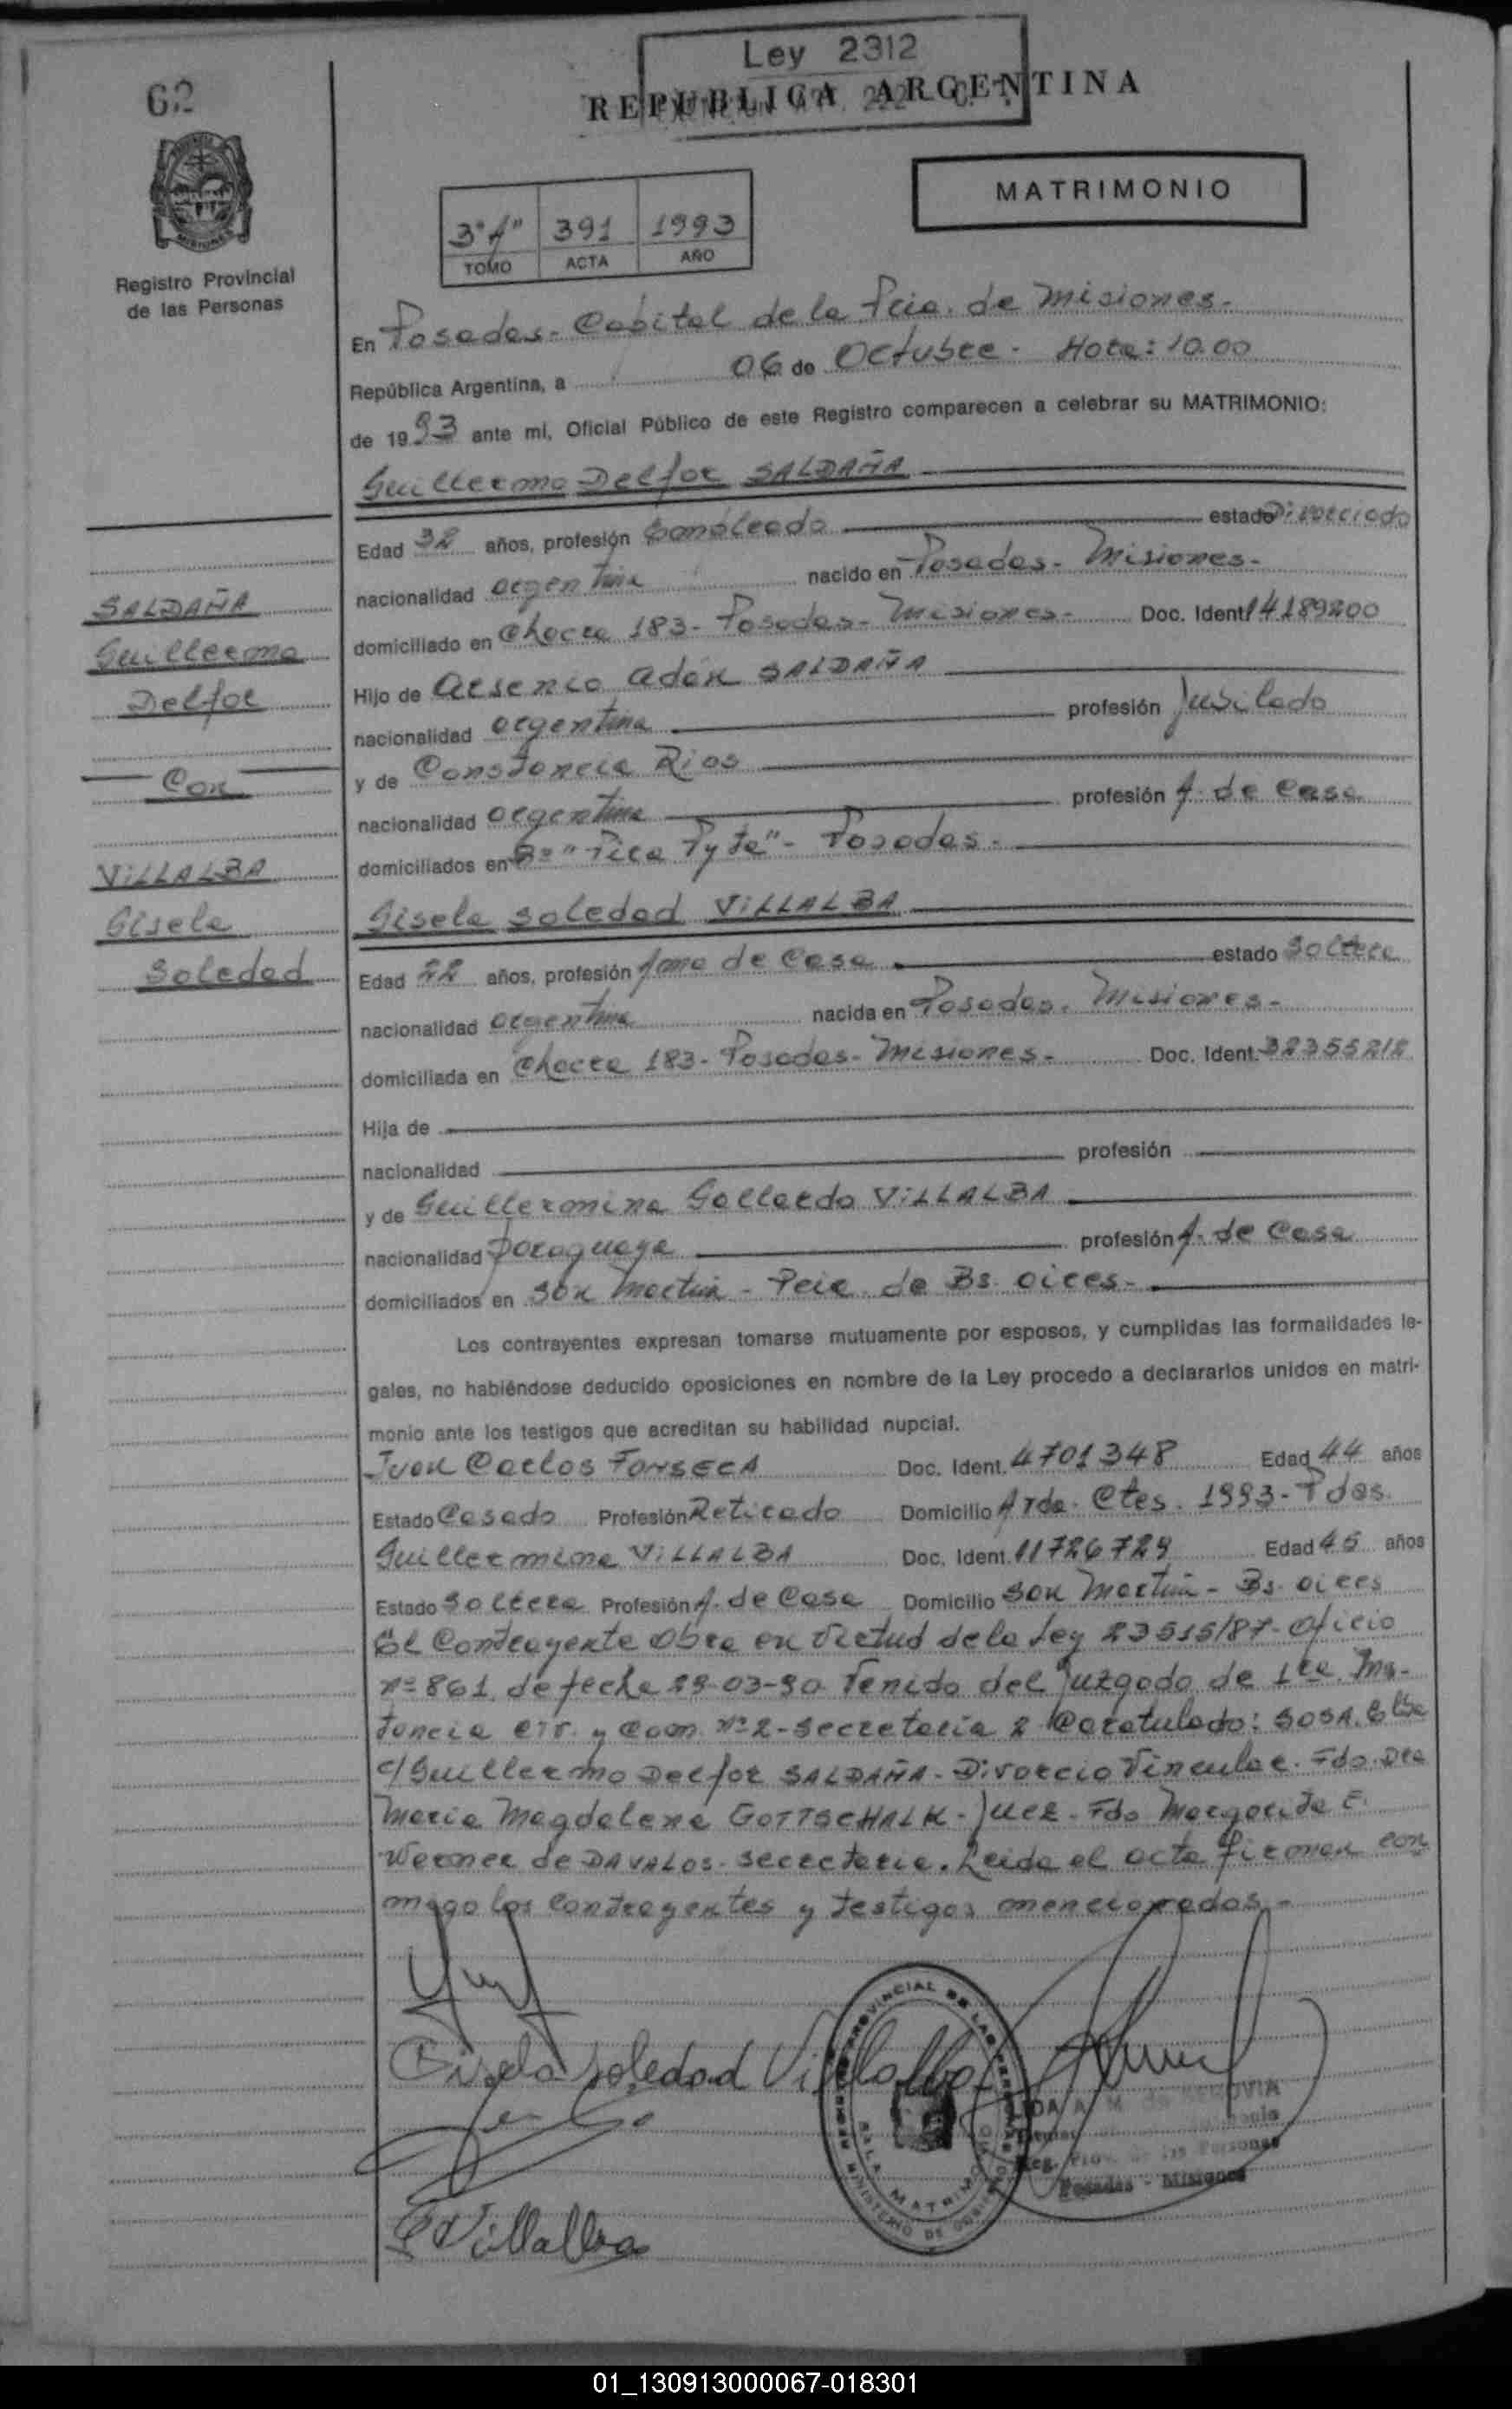 62
Ley 2312
REPUBLICA ARGENTINA
MATRIMONIO
3º"A" 391 1993
TOMO ACTA AÑO
Registro Provincial
de las Personas
En Posadas - Capital de la Pcia. de Misiones.-
República Argentina, a 06 de Octubre - Hora: 10.00
de 1993 ante mi, Oficial Público de este Registro comparecen a celebrar su MATRIMONIO:
Guillermo Delfor SALDAÑA
Edad 32 años, profesión Empleado estado Divorciado
nacionalidad argentina nacido en Posadas - Misiones -
domiciliado en Chacra 183 - Posadas - Misiones - Doc. Ident 14189200
Hijo de Arsenio Adán SALDAÑA
nacionalidad argentina profesión Jubilado
y de Constancia Rios
nacionalidad argentina profesión A. de Casa
domiciliados en Bº "Pira Pyta" - Posadas -
SALDAÑA
Guillermo
Delfor
Con
VILLALBA
Gisela
Soledad
Gisela Soledad VILLALBA
Edad 22 años, profesión Ama de Casa estado Soltera
nacionalidad argentina nacida en Posadas - Misiones -
domiciliada en Chacra 183 - Posadas - Misiones - Doc. Ident. 32355212
Hija de
nacionalidad profesión
y de Guillermina Gallardo VILLALBA
nacionalidad paraguaya profesión A. de Casa
domiciliados en San Martin - Pcia. de Bs. aires -
Los contrayentes expresan tomarse mutuamente por esposos, y cumplidas las formalidades le-
gales, no habiéndose deducido oposiciones en nombre de la Ley procedo a declararlos unidos en matri-
monio ante los testigos que acreditan su habilidad nupcial.
Juan Carlos FONSECA Doc. Ident. 4701348 Edad 44 años
Estado Casado Profesión Retirado Domicilio Avda. Ctes. 1993 - Pdas.
Guillermina VILLALBA Doc. Ident. 11726729 Edad 45 años
Estado Soltera Profesión A. de Casa Domicilio San Martin - Bs. aires
El Contrayente Obra en Virtud de la Ley 23515/87 - Oficio
nº 861 de fecha 29-03-90 Venido del Juzgado de 1ra. Ins-
tancia Civ. y Com. nº 2 - Secretaria 2 Caratulado: SOSA, Elsa
c/ Guillermo Delfor SALDAÑA - Divorcio Vincular. Fdo. Dra
Maria Magdalena GOTTSCHALK - Juez - Fdo Margarita E.
Werner de DAVALOS - Secretaria. Leida el acta firman con
migo los Contrayentes y testigos mencionados -
Gisela Soledad Villalba
G Villalba
REGISTRO PROVINCIAL DE LAS PERSONAS
MINISTERIO DE GOBIERNO
SALA MATRIMONIO
Reg. Prov. de las Personas
Posadas - Misiones
01_130913000067-018301